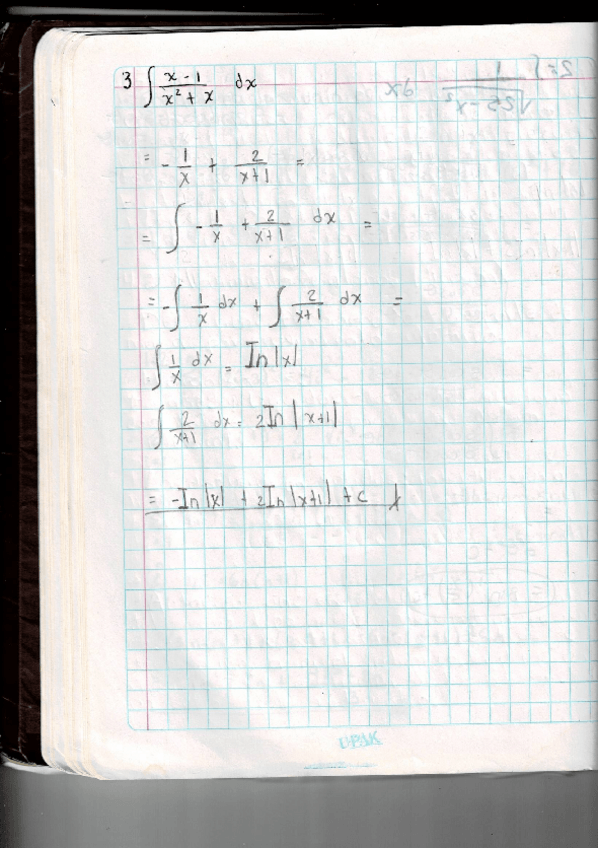 3 ∫ x-1 / x² + x dx
= - 1/x + 2/x+1 =
= ∫ - 1/x + 2/x+1 dx =
= -∫ 1/x dx + ∫ 2/x+1 dx =
∫ 1/x dx = In|x|
∫ 2/x+1 dx = 2In|x+1|
= -In|x| + 2In|x+1| + c